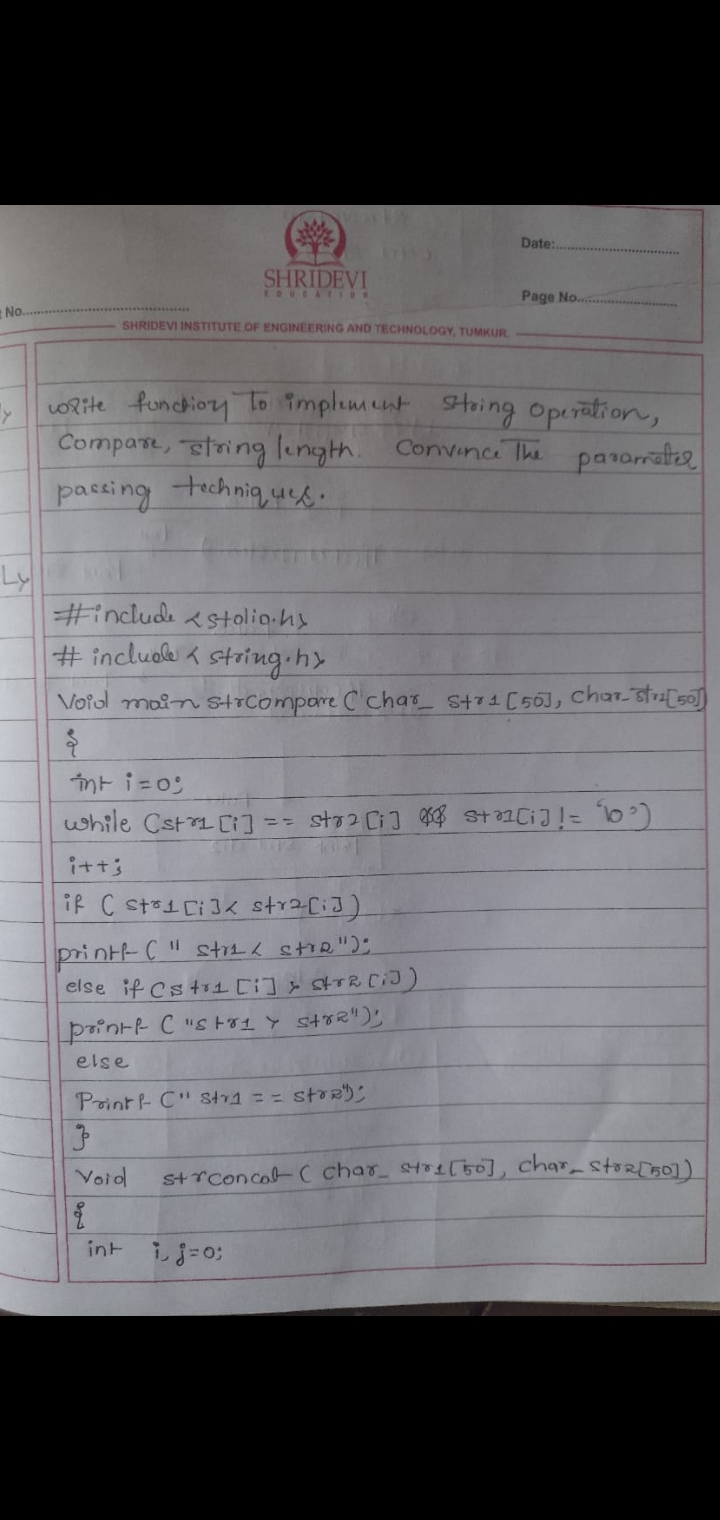 SHRIDEVI
EDUCATION
Date:
Page No.
No.
SHRIDEVI INSTITUTE OF ENGINEERING AND TECHNOLOGY, TUMKUR.
y
write function To implement string operation,
Compare, string length. Convence The parameter
passing techniques.
Ly
#include <stolio.h>
# include < string.h>
Void main strcompare ( char_ str1 [50], char_str2[50]
{
int i=0;
while (str1 [i] == str2 [i] && str1[i] != '\0')
i++;
if ( str1 [i] < str2[i])
printf (" str1 < str2");
else if (str1 [i] > str2 [i])
printf ("str1 > str2");
else
Printf (" str1 == str2");
}
Void strconcat ( char_ str1[50], char_ str2[50])
{
int i, j=0;